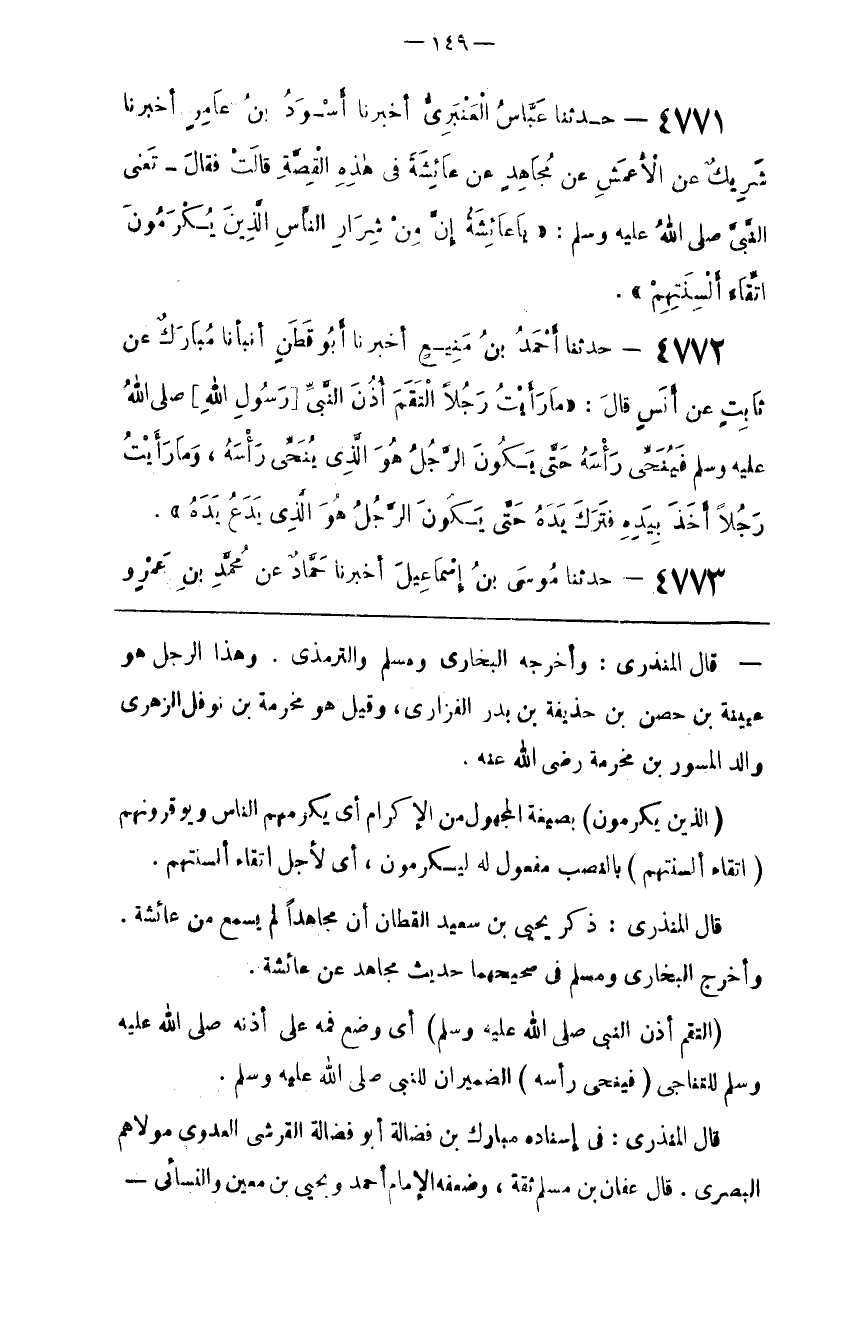 — ١٤٩ —
٤٧٧١ — حـدثنا عَبَّاسُ الْعَنْبَرِىُّ أخبرنا أَسْـوَدُ بنُ عَامِرٍ أخبرنا
شَرِيكٌ عن الْأَعمَشِ عن مُجَاهِدٍ عن عَائِشَةَ فى هٰذِهِ الْقِصَّةِ قالَتْ فقالَ ـ تَعْنى
النَّبىَّ صلى اللهُ عليه وسلم : « يَاعَائِشَةُ إِنَّ مِنْ شِرَارِ النَّاسِ الَّذِينَ يُـكْرَمُونَ
اتِّقَاءَ أَلْسِنَتِهِمْ » .
٤٧٧٢ — حدثنا أَحْمَدُ بنُ مَنِيـعٍ أخبرنا أَبُو قَطَنٍ أنبأنا مُبَارَكٌ عن
ثَابِتٍ عن أَنَسٍ قالَ : «مارَأَيْتُ رَجُلاً الْتَقَمَ أُذُنَ النَّبىِّ [رَسُولِ اللهِ] صلى اللهُ
عليه وسلم فَيُنَحِّى رَأْسَهُ حَتَّى يَـكُونَ الرَّجُلُ هُوَ الَّذِى يُنَحِّى رَأْسَهُ ، وَمارَأَيْتُ
رَجُلاً أَخَذَ بِيَدِهِ فَتَرَكَ يَدَهُ حَتَّى يَـكُونَ الرَّجُلُ هُوَ الَّذِى يَدَعُ يَدَهُ » .
٤٧٧٣ — حدثنا مُوسَى بنُ إِسْمَاعِيلَ أخبرنا حَمَّادٌ عن مُحمَّدِ بنِ عَمْرٍو
— قال المنذرى : وأخرجه البخارى ومسلم والترمذى . وهذا الرجل هو
عيينة بن حصن بن حذيفة بن بدر الفزارى، وقيل هو مخرمة بن نوفل الزهرى
والد المسور بن مخرمة رضى الله عنه .
( الذين يكرمون) بصيغة المجهول من الإكرام أى يكرمهم الناس ويوقرونهم
( اتقاء ألسنتهم ) بالنصب مفعول له ليـكرمون ، أى لأجل اتقاء ألسنتهم .
قال المنذرى : ذكر يحيى بن سعيد القطان أن مجاهداً لم يسمع من عائشة .
وأخرج البخارى ومسلم فى صحيحهما حديث مجاهد عن عائشة .
(التقم أذن النبى صلى الله عليه وسلم) أى وضع فمه على أذنه صلى الله عليه
وسلم للتناجى ( فينحى رأسه ) الضميران للنبى صلى الله عليه وسلم .
قال المنذرى : فى إسناده مبارك بن فضالة أبو فضالة القرشى العدوى مولاهم
البصرى . قال عفان بن مسلم ثقة ، وضعفه الإمام أحمد ويحيى بن معين والنسائى —